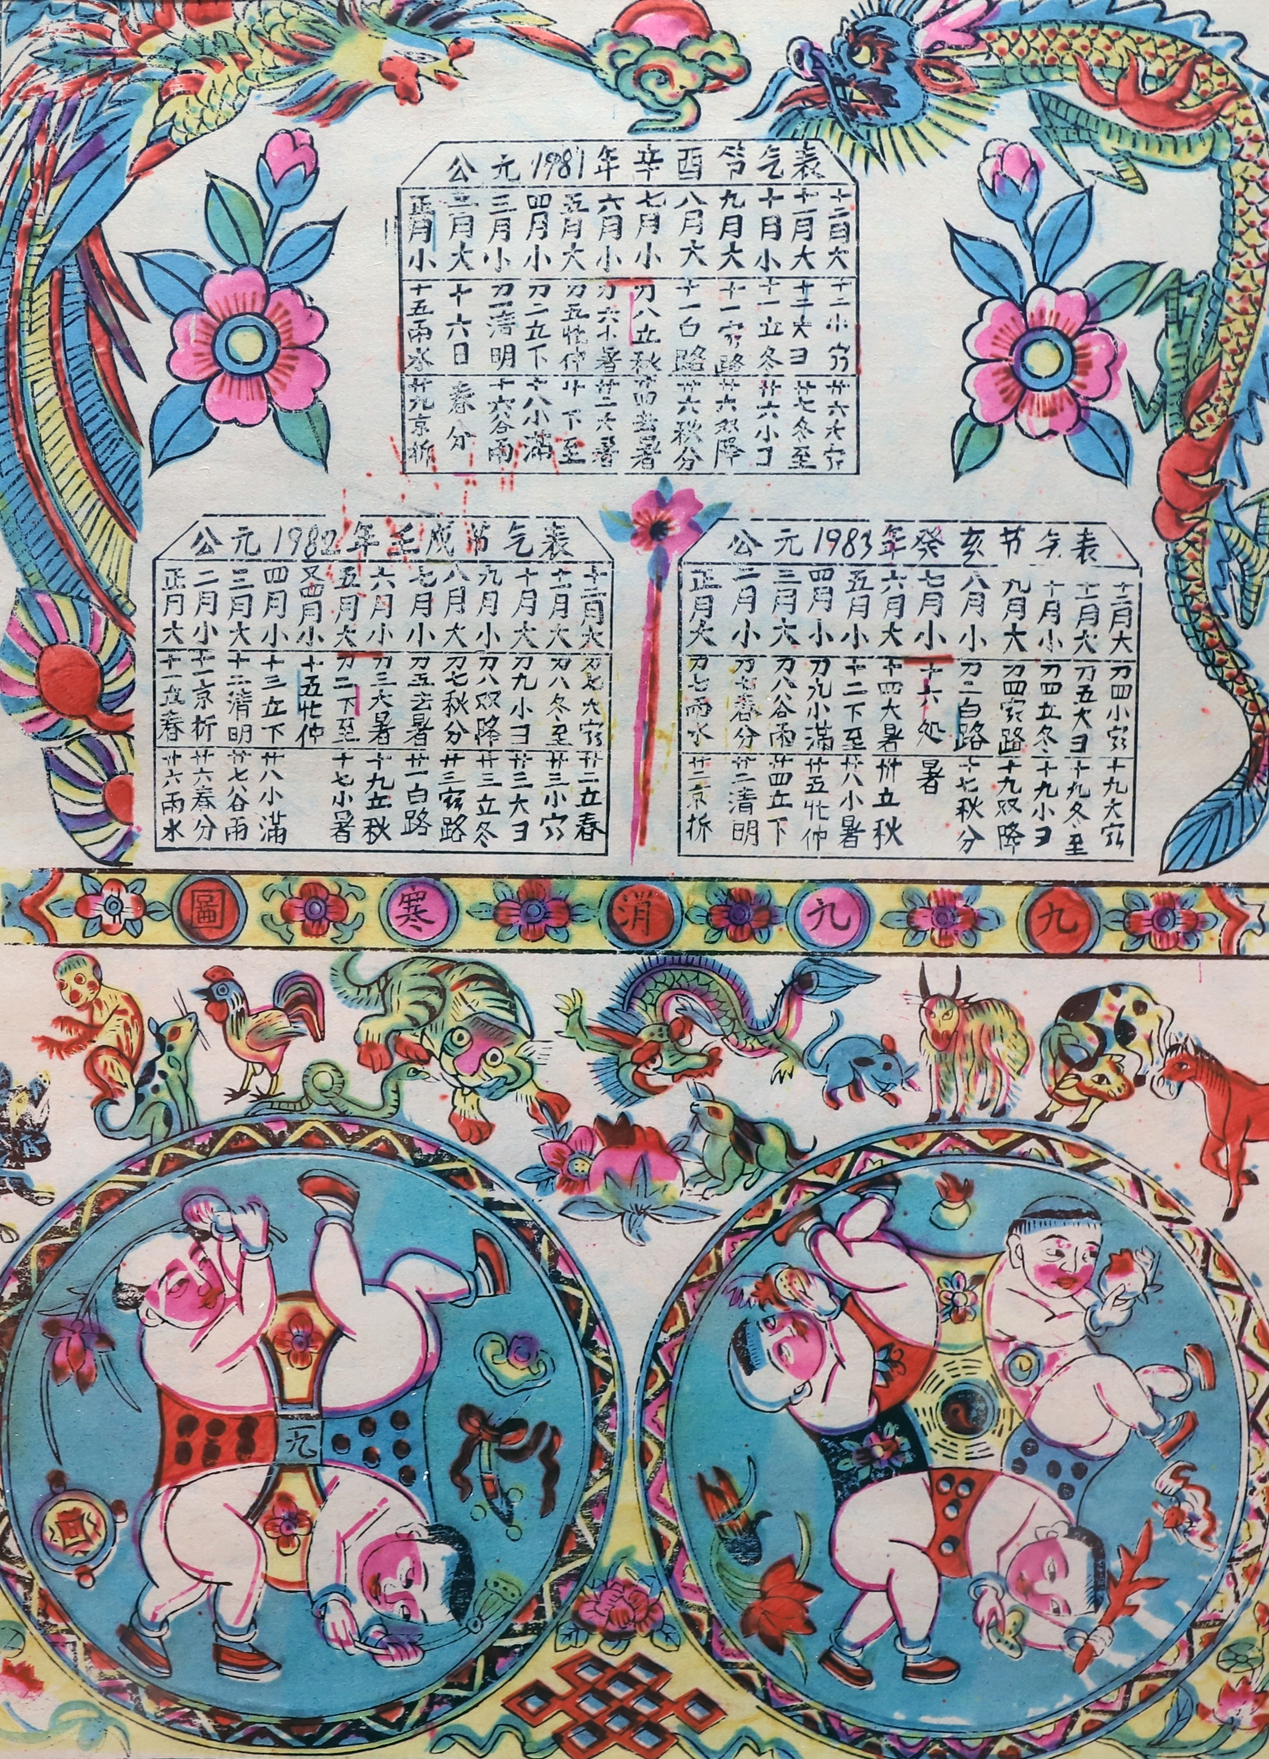 公元1981年辛酉节气表
正月小 十五雨水 廿九京折
二月大 十六日春分
三月小 刀一清明 十六谷雨
四月小 刀二立下 十八小滿
五月大 刀五忙仲 廿下至
六月小 刀六小暑 廿二大暑
七月小 刀八立秋 廿四去暑
八月大 十一白路 廿六秋分
九月大 十一穷路 廿六双降
十月小 十一立冬 廿六小彐
十一月大 十二大彐 廿七冬至
十二月大 十二小穷 廿六大穷
公元1982年壬戌节气表
正月大 十一立春 廿六雨水
二月小 十一京折 廿六春分
三月大 十二清明 廿七谷雨
四月小 十三立下 廿八小滿
又四月小 十五忙仲
五月大 刀二下至 十七小暑
六月小 刀三大暑 十九立秋
七月小 刀五去暑 廿一白路
八月大 刀七秋分 廿三穷路
九月小 刀八双降 廿三立冬
十月大 刀九小彐 廿三大彐
十一月大 刀八冬至 廿三小穷
十二月大 刀七大穷 廿二立春
公元1983年癸亥节气表
正月大 刀七雨水 廿二京折
二月小 刀七春分 廿二清明
三月大 刀八谷雨 廿四立下
四月小 刀九小滿 廿五忙仲
五月小 十二下至 廿八小暑
六月大 十四大暑 卅立秋
七月小 十六处暑
八月小 刀二白路 十七秋分
九月大 刀四穷路 十九双降
十月小 刀四立冬 十九小彐
十一月大 刀五大彐 十九冬至
十二月大 刀四小穷 十九大穷
九九消寒圖
一九